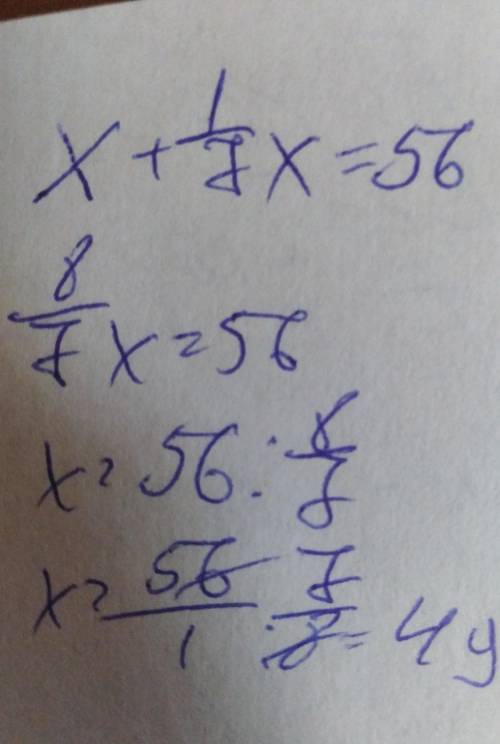 x + 1/7 x = 56
8/7 x = 56
x = 56 : 8/7
x = 56/1 · 7/8 = 49